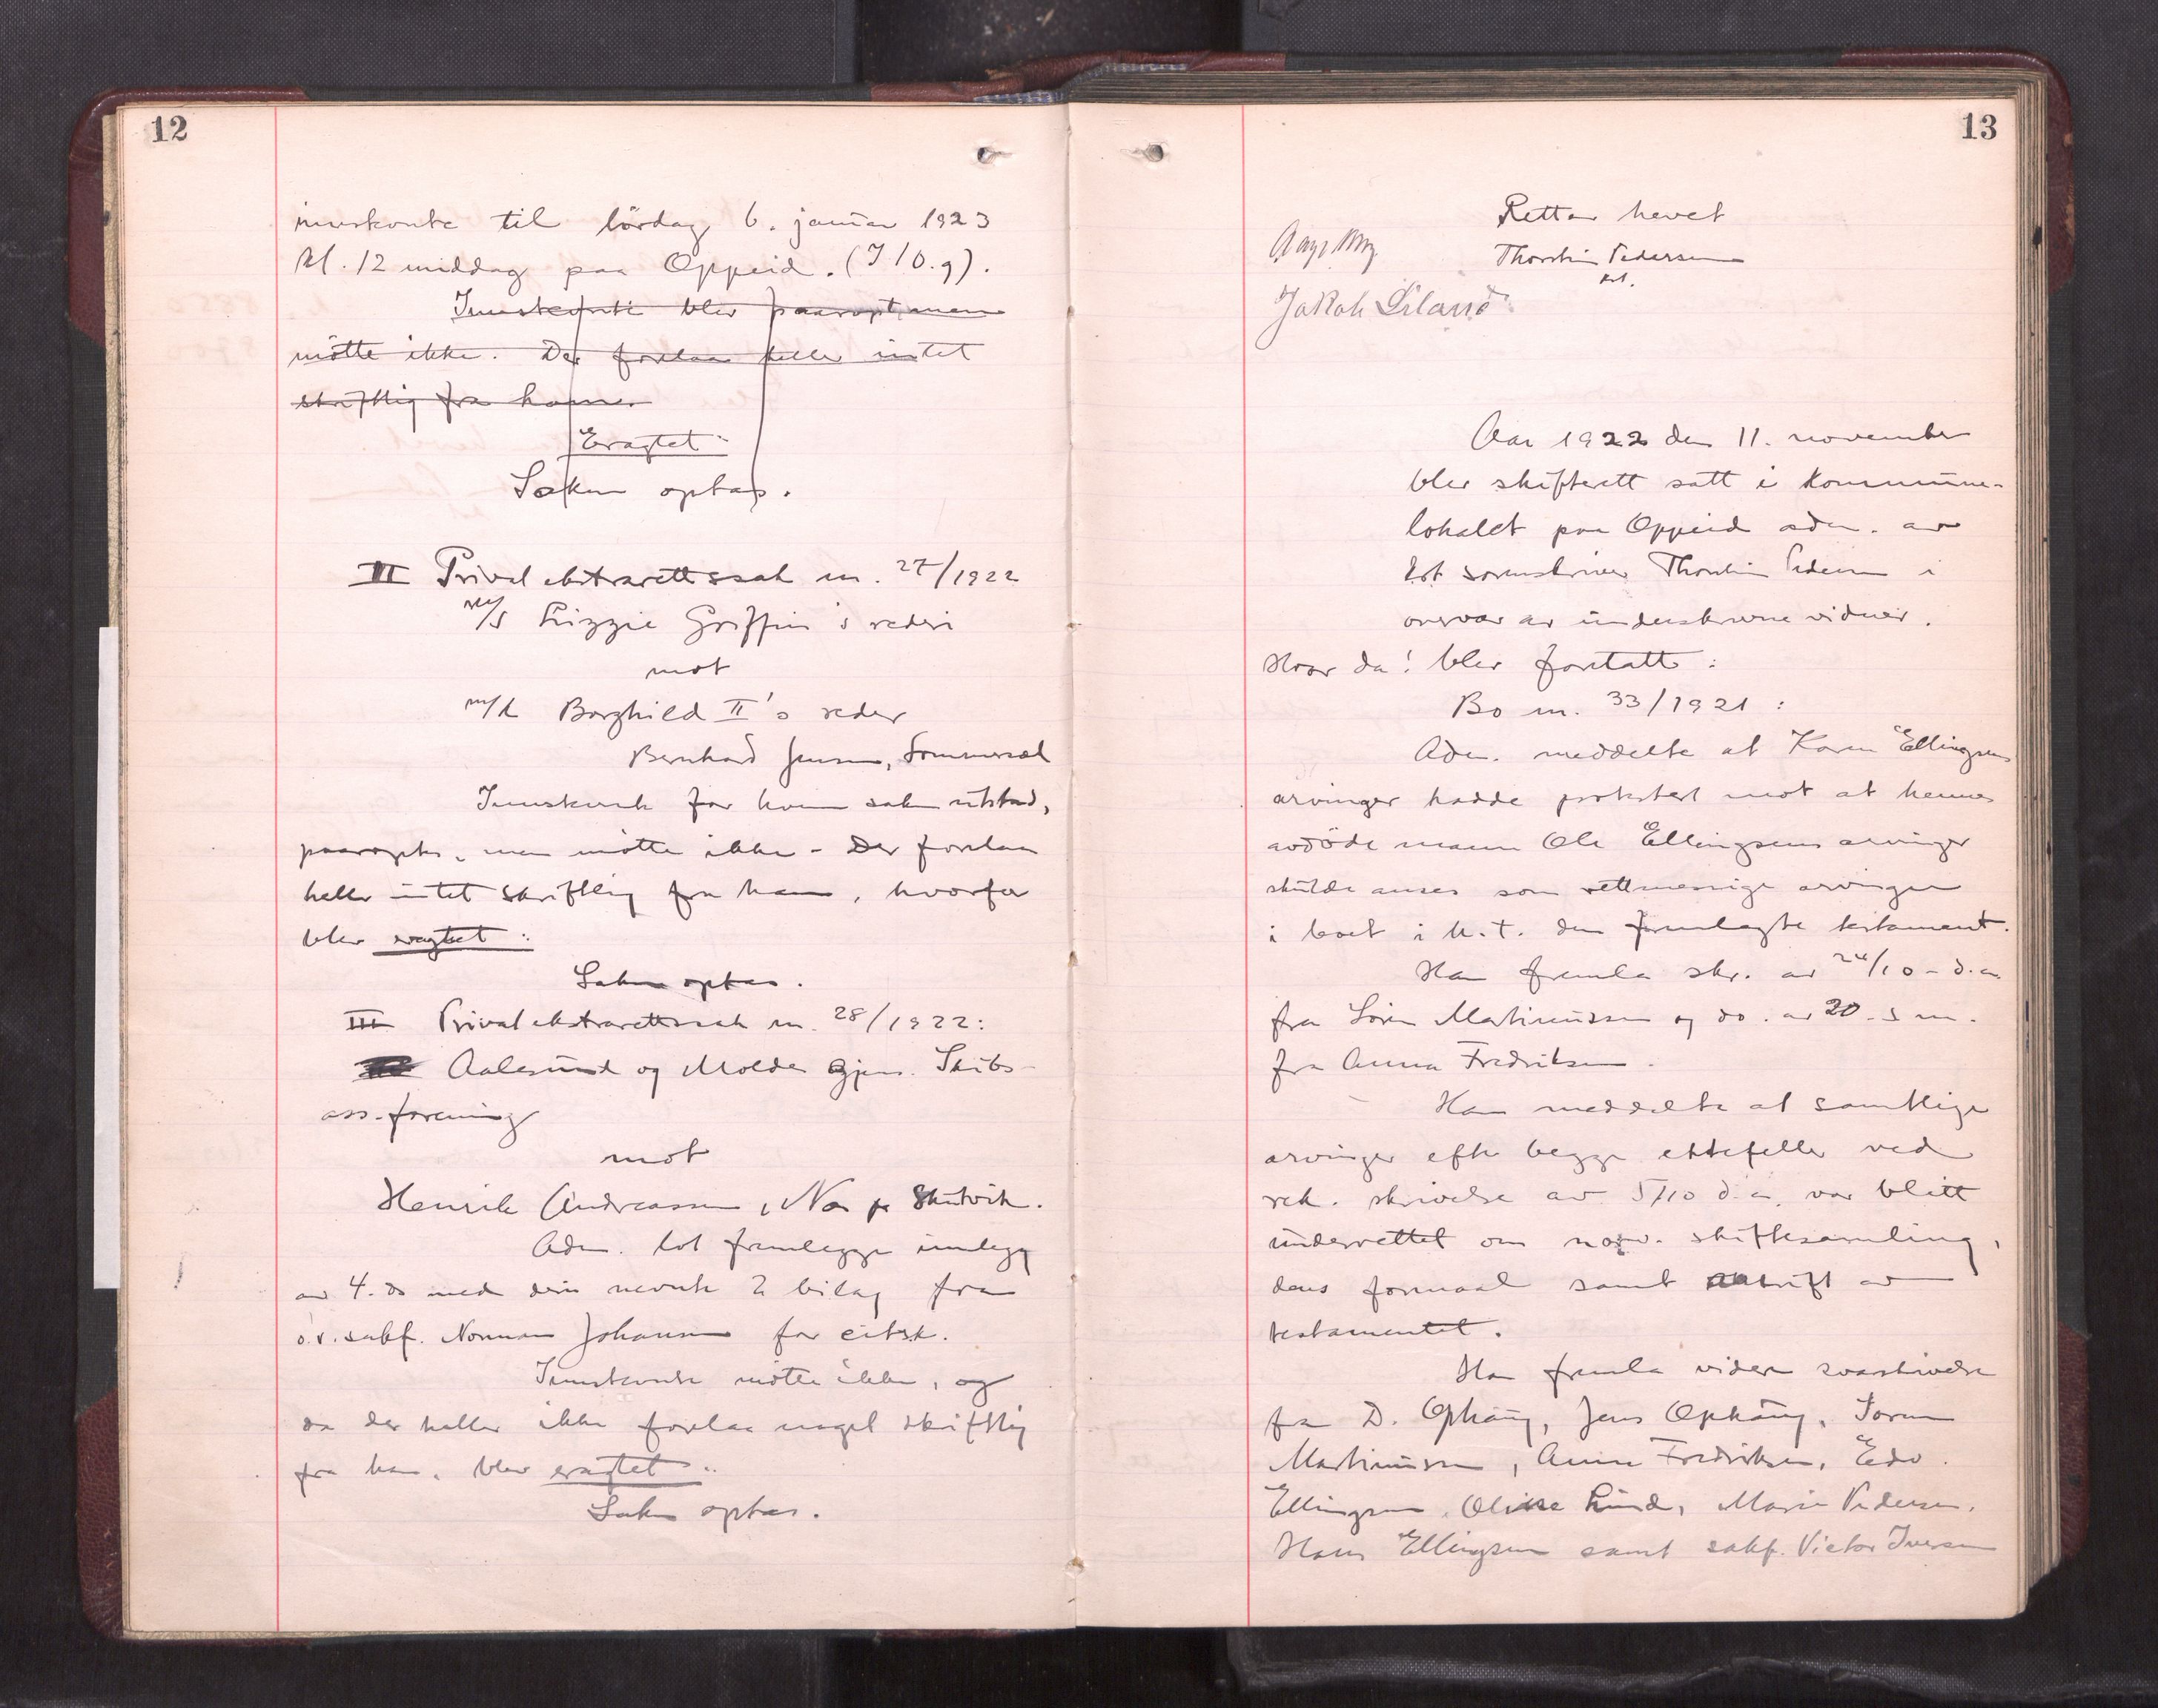 12
innskonte til lördag 6. januar 1923
kl. 12 middag paa Oppeid. (J 10.9).
Innstevnte blev paaropt, men
mötte ikke. Der forelaa heller intet
skriftlig fra ham.
Eragtet:
Saken optas.
II Privat ekstrarettssak nr. 27/1922
m/s Lizzie Griffin's rederi
mot
m/k Borghild II's reder
Bernhard Jensen, Sommersel
Innstevnte for hvem saken utstod,
paaroptes, men mötte ikke. Der forelaa
heller intet skriftlig fra ham, hvorfor
blev eragtet:
Saken optas.
III Privat ekstrarettssak nr. 28/1922:
Aalesund og Molde gjens. Skibs-
ass.forening
mot
Henrik Andreassen, Nes pr Skutvik.
Adm. lot fremlegge innlegg
av 4. ds med deri nevnte 2 bilag fra
o.r.sakf. Norman Johansen for citsk.
Innstevnte mötte ikke, og
da der heller ikke forelaa noget skriftlig
fra ham, blev eragtet:
Saken optas.
13
Retten hevet
Thorstein Pedersen
kst.
Jakob Eiland
Aar 1922 den 11. november
blev skifterett satt i kommune-
lokalet paa Oppeid adm. av
kst sorenskriver Thorstein Pedersen i
overvær av underskrevne vidner.
Hvor da! blev foretatt:
Bo nr. 33/1921:
Adm. meddelte at Karen Ellingsens
arvinger hadde protestert mot at hennes
avdöde mann Ole Ellingsens arvinger
skulde anses som rettmessige arvinger
i boet i h.t. den fremlagte testament.
Han fremla skr. av 24/10 - d.a.
fra Sören Martinussen og do. av 20. s m.
fra Anna Fredriksen.
Han meddelte at samtlige
arvinger efter begge ektefeller ved
rek. skrivelse av 5/10 d.a. var blitt
underrettet om nærv. skiftesamling,
dens formaal samt avskrift av
testamentet.
Han fremla videre svarskrivelse
fra D. Ophaug, Jens Ophaug, Sören
Martinussen, Anna Fredriksen, Edv.
Ellingsen, Olisse Lund, Marie Pedersen,
Hans Ellingsen samt sakf. Victor Iversen